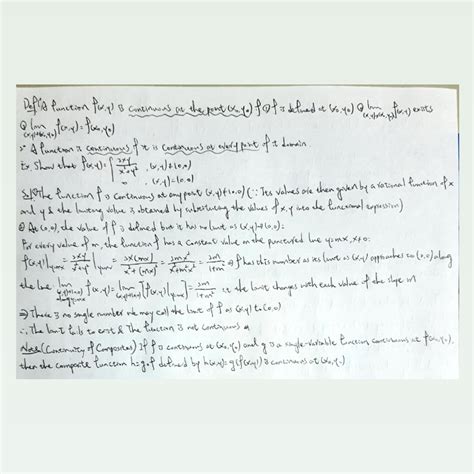 Def: 1° A function f(x,y) is continuous at the point (x₀,y₀) if ① f is defined at (x₀,y₀) ② lim_{(x,y)→(x₀,y₀)} f(x,y) exists
③ lim_{(x,y)→(x₀,y₀)} f(x,y) = f(x₀,y₀)
2° A function is continuous if it is continuous at every point of its domain.
Ex. Show that f(x,y) = { 2xy/(x²+y²), (x,y)≠(0,0)
0, (x,y)=(0,0)
Sol: ① The function f is continuous at any point (x,y)≠(0,0) (∵ Its values are then given by a rational function of x
and y & the limiting value is obtained by substituting the values of x, y into the functional expression)
② At (0,0), the value of f is defined but it has no limit as (x,y)→(0,0):
For every value of m, the function f has a constant value on the punctured line y=mx, x≠0:
f(x,y)|_{y=mx} = 2xy/(x²+y²)|_{y=mx} = 2x(mx)/(x²+(mx)²) = 2mx²/(x²+m²x²) = 2m/(1+m²) ⇒ f has this number as its limit as (x,y) approaches to (0,0) along
the line: lim_{(x,y)→(0,0) along y=mx} f(x,y) = lim_{(x,y)→(0,0)} [f(x,y)|_{y=mx}] = 2m/(1+m²) ∴ the limit changes with each value of the slope m
⇒ There is no single number we may call the limit of f as (x,y) to (0,0)
∴ The limit fails to exist & The function is not continuous
Note: (Continuity of Composites) If f is continuous at (x₀,y₀) and g is a single-variable function continuous at f(x₀,y₀),
then the composite function h=g∘f defined by h(x,y)=g(f(x,y)) is continuous at (x₀,y₀)